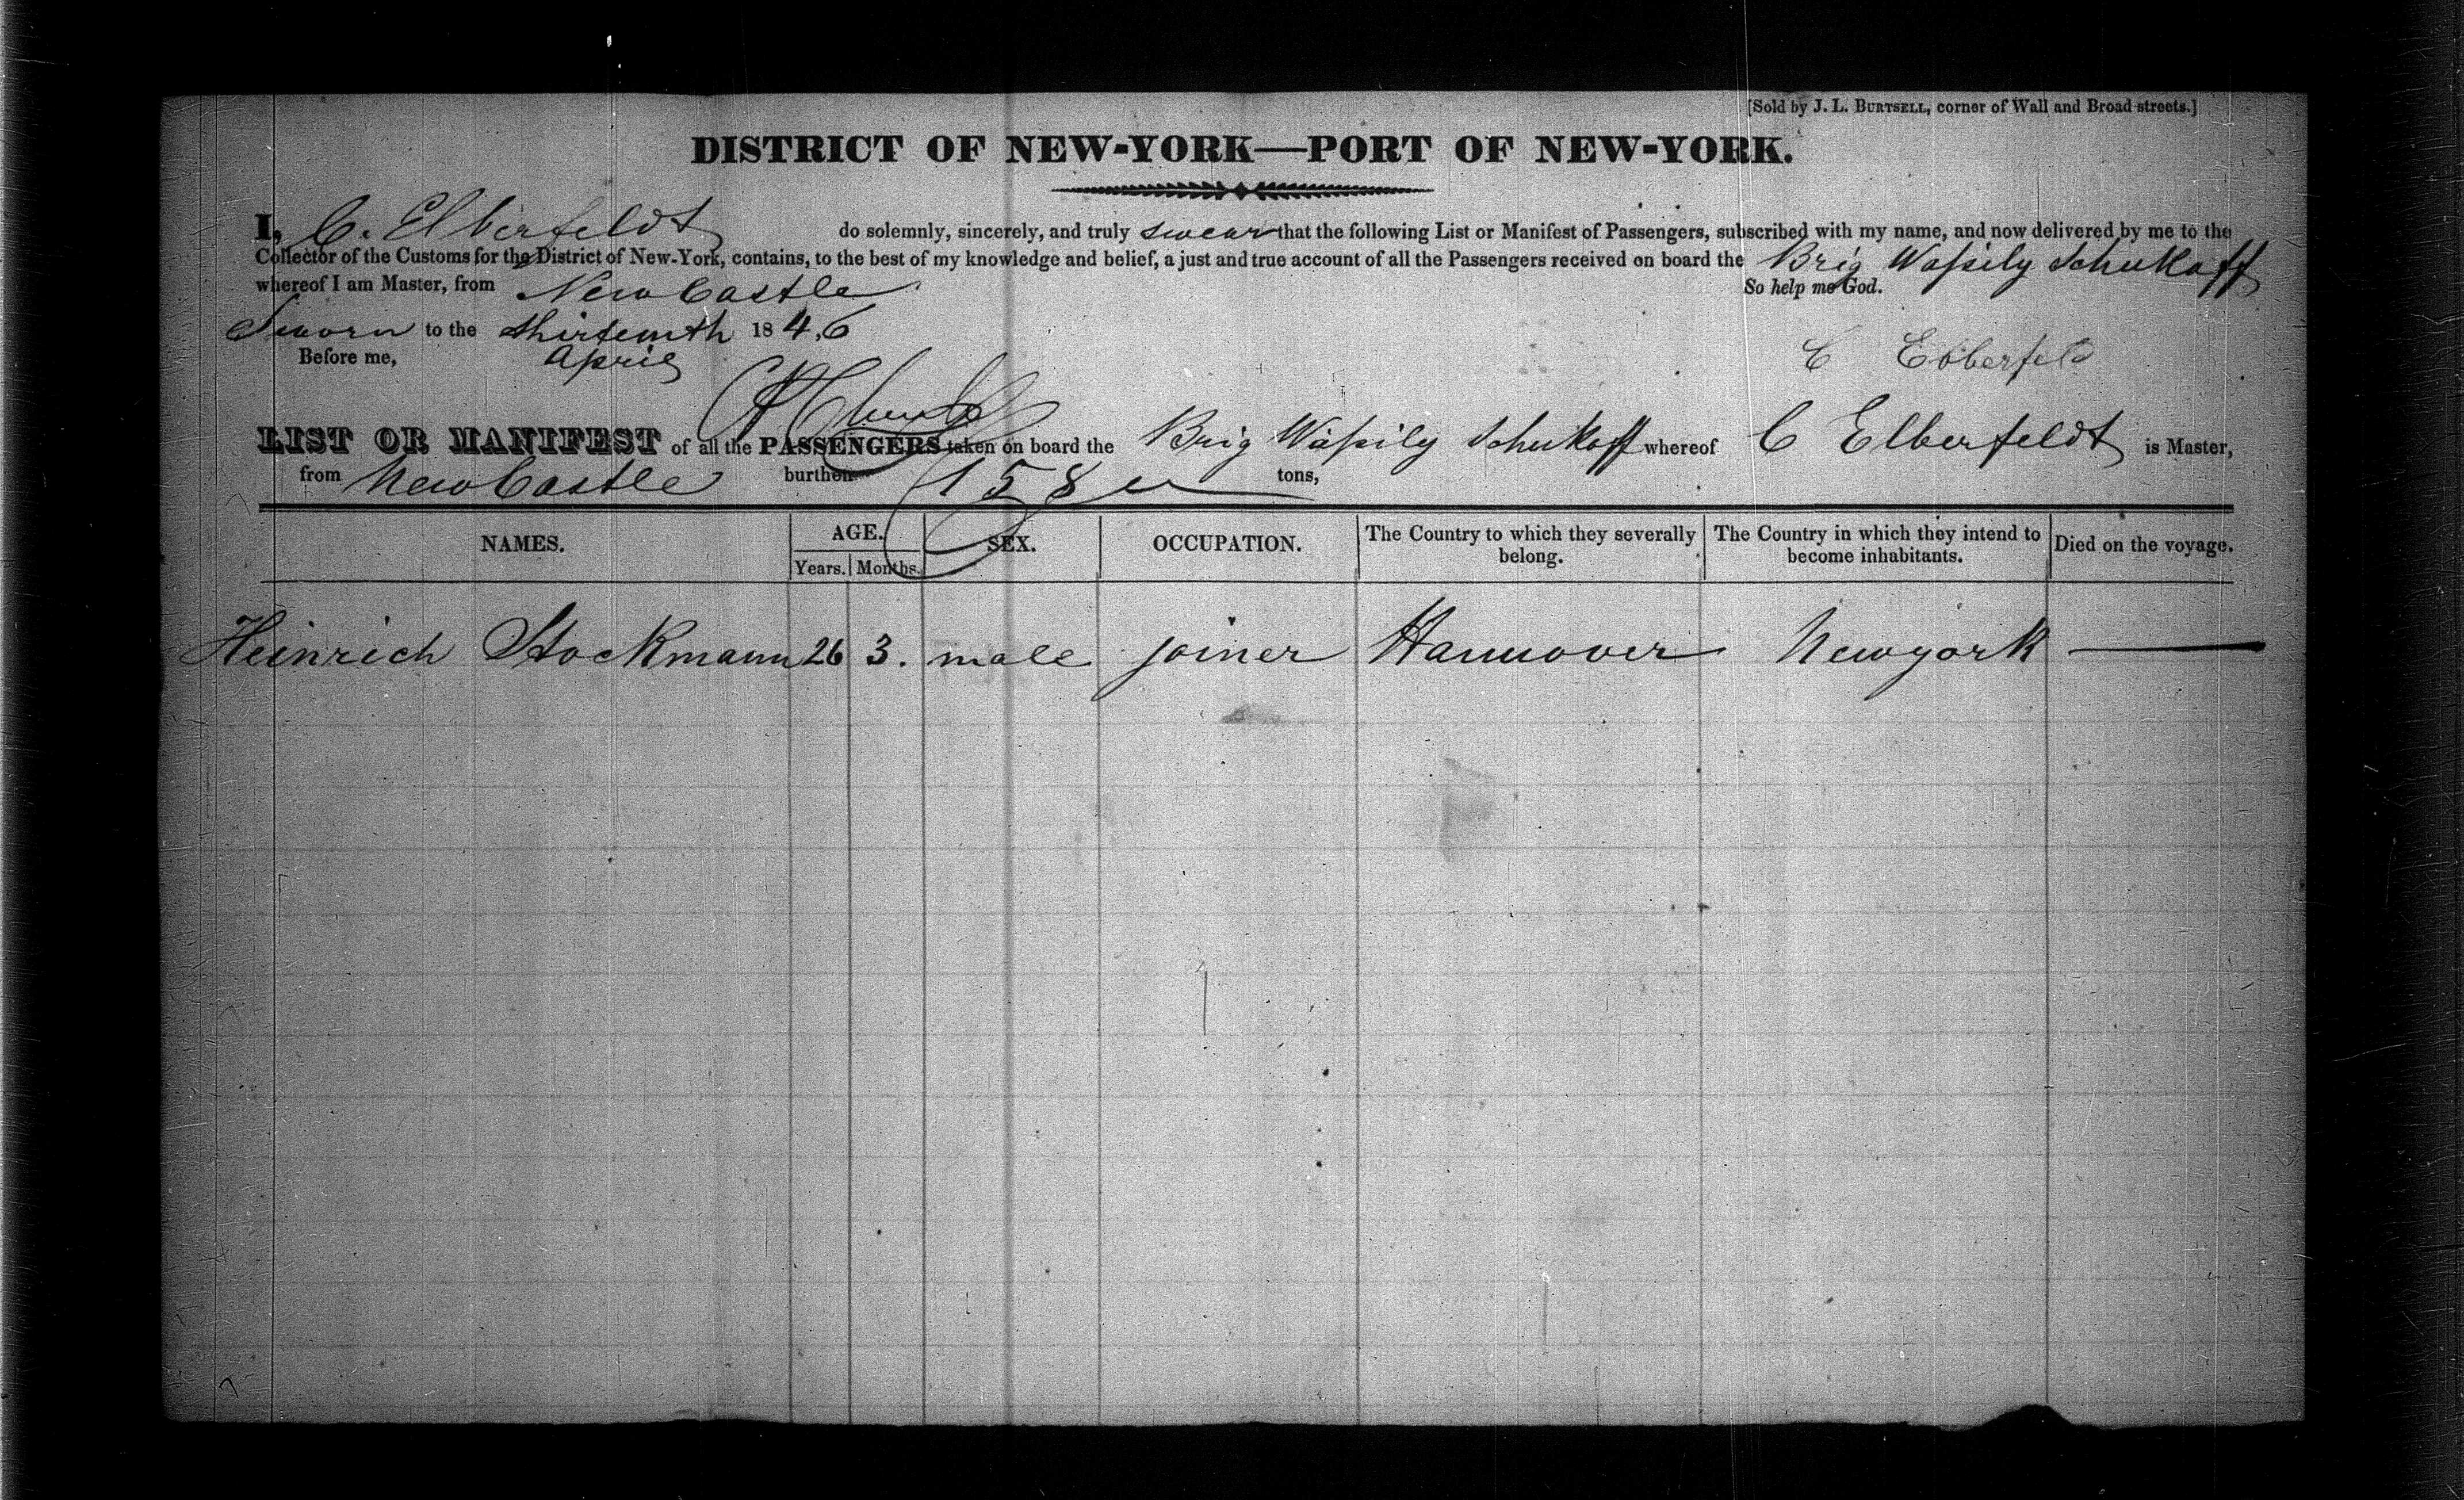 [Sold by J. L. BURTSELL, corner of Wall and Broad-streets.]
DISTRICT OF NEW-YORK—PORT OF NEW-YORK.
I, C. Elberfeldt do solemnly, sincerely, and truly swear that the following List or Manifest of Passengers, subscribed with my name, and now delivered by me to the
Collector of the Customs for the District of New-York, contains, to the best of my knowledge and belief, a just and true account of all the Passengers received on board the Brig Waſsily Schukoff
whereof I am Master, from New Castle So help me God.
Sworn to the thirteenth 1846
Before me, April C Elberfeld
LIST OR MANIFEST of all the PASSENGERS taken on board the Brig Waſsily Schukoff whereof C Elberfeldt is Master,
from New Castle burthen 158 tons,
NAMES. AGE. SEX. OCCUPATION. The Country to which they severally belong. The Country in which they intend to become inhabitants. Died on the voyage.
Years. Months.
Heinrich Stockmann 26 3. male joiner Hannover Newyork —